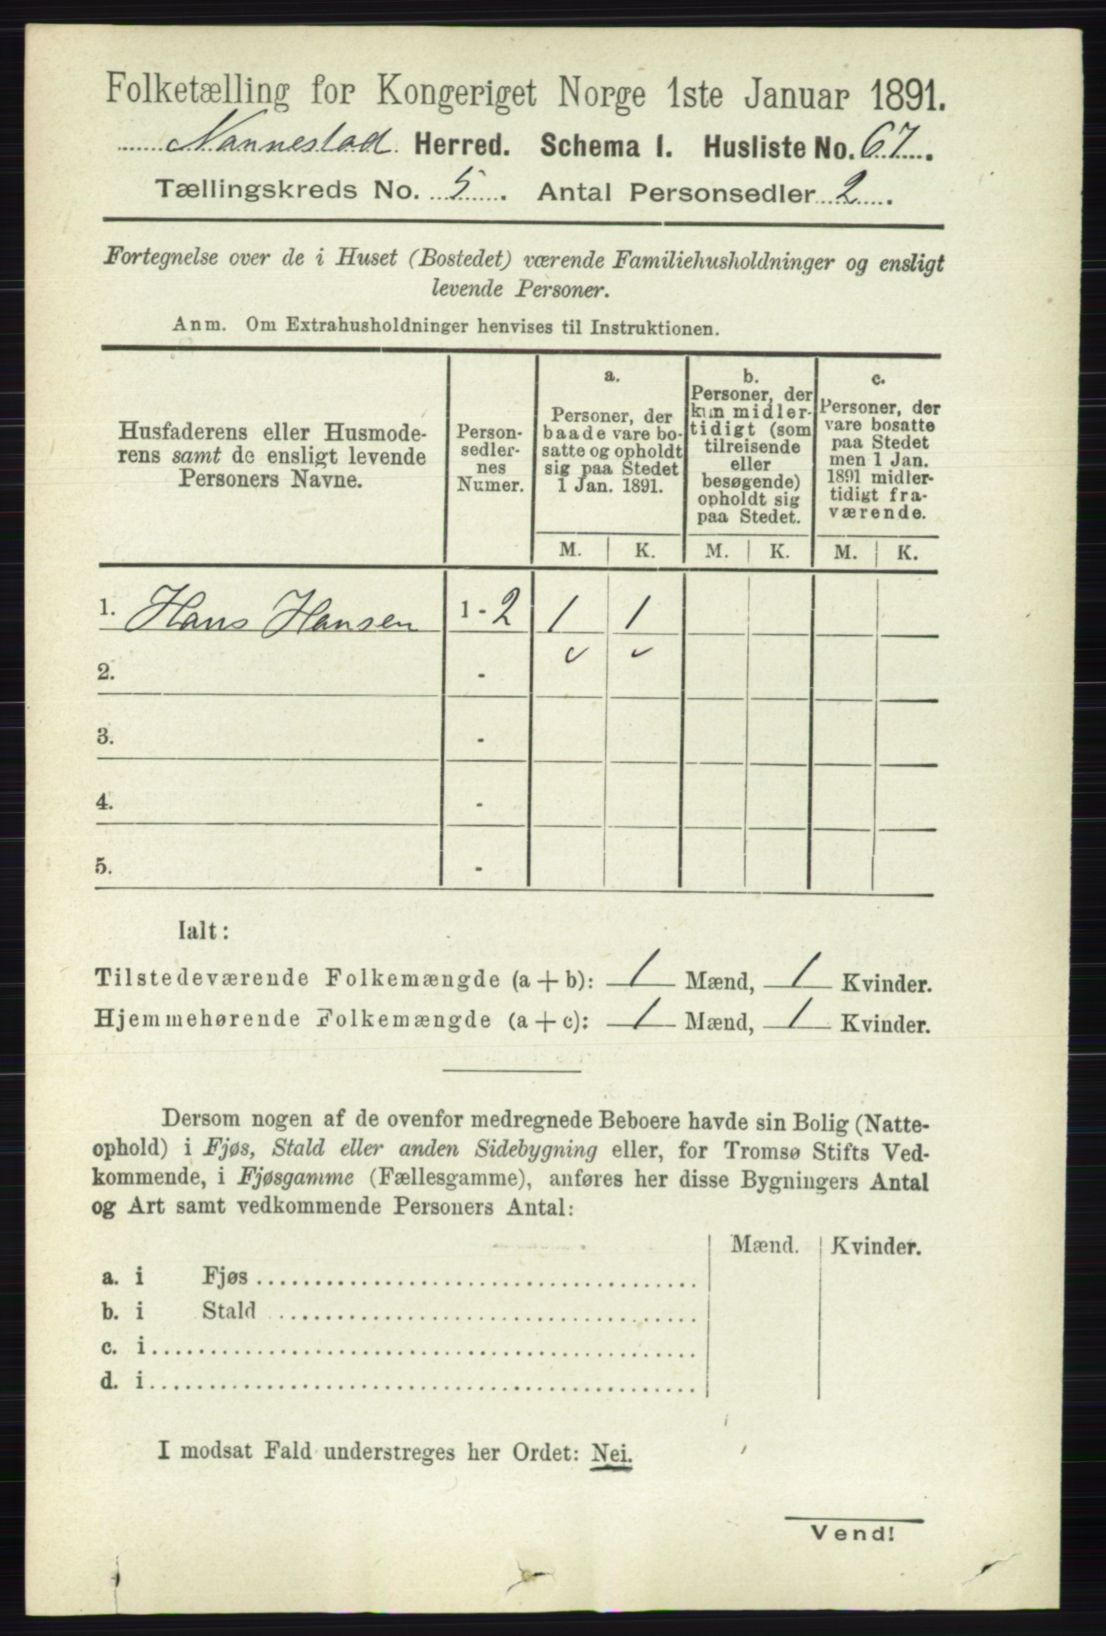 Folketælling for Kongeriget Norge 1ste Januar 1891.
Nannestad Herred. Schema I. Husliste No. 67.
Tællingskreds No. 5. Antal Personsedler 2.
Fortegnelse over de i Huset (Bostedet) værende Familiehusholdninger og ensligt
levende Personer.
Anm. Om Extrahusholdninger henvises til Instruktionen.
Husfaderens eller Husmode-
rens samt de ensligt levende
Personers Navne.
Person-
sedler-
nes
Numer.
a.
Personer, der
baade vare bo-
satte og opholdt
sig paa Stedet
1 Jan. 1891.
b.
Personer, der
kun midler-
tidigt (som
tilreisende
eller
besøgende)
opholdt sig
paa Stedet.
c.
Personer, der
vare bosatte
paa Stedet
men 1 Jan.
1891 midler-
tidigt fra-
værende.
M. K. M. K. M. K.
1. Hans Hansen 1 - 2 1 1
2. -
3. -
4. -
5. -
Ialt:
Tilstedeværende Folkemængde (a + b): 1 Mænd, 1 Kvinder.
Hjemmehørende Folkemængde (a + c): 1 Mænd, 1 Kvinder.
Dersom nogen af de ovenfor medregnede Beboere havde sin Bolig (Natte-
ophold) i Fjøs, Stald eller anden Sidebygning eller, for Tromsø Stifts Ved-
kommende, i Fjøsgamme (Fællesgamme), anføres her disse Bygningers Antal
og Art samt vedkommende Personers Antal:
Mænd. Kvinder.
a. i Fjøs
b. i Stald
c. i
d. i
I modsat Fald understreges her Ordet: Nei.
Vend!